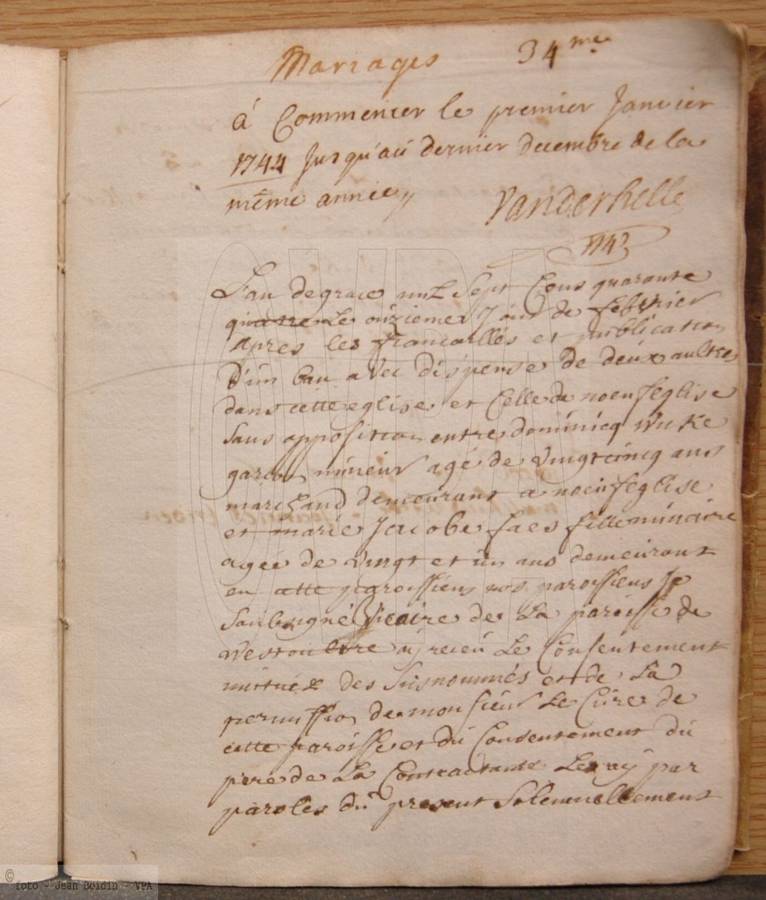 Mariages 34me
á Commencer le premier Janvier
1744 Jusqu'au dernier decembre de la
même année,,
Vanderhelle
L'an de grace mil Sept Cens quarante
quattre Le onzieme Jour de febvrier
apres les fiancailles et publication
d'un ban avec dispense de deux aultres
dans cette eglise et Celle de noeufeglise
Sans opposition entre dominicq
garcon mineur agé de vingtcinq ans
marchand demeurant a noeufeglise
et marie Jacobe faes fille mineure
agée de vingt et un ans demeurant
en cette paroissiens nos paroissiens Je
Soubsigné Vicaire de La paroisse de
Westoultre ay receu Le Consentement
mutuel des Susnommés et de La
permission de monsieur Le Curé de
cette paroisse et du Consentement du
pere de La Contractante Les ay par
paroles du present Solemnellement
© foto - Jean Boidin - VPA